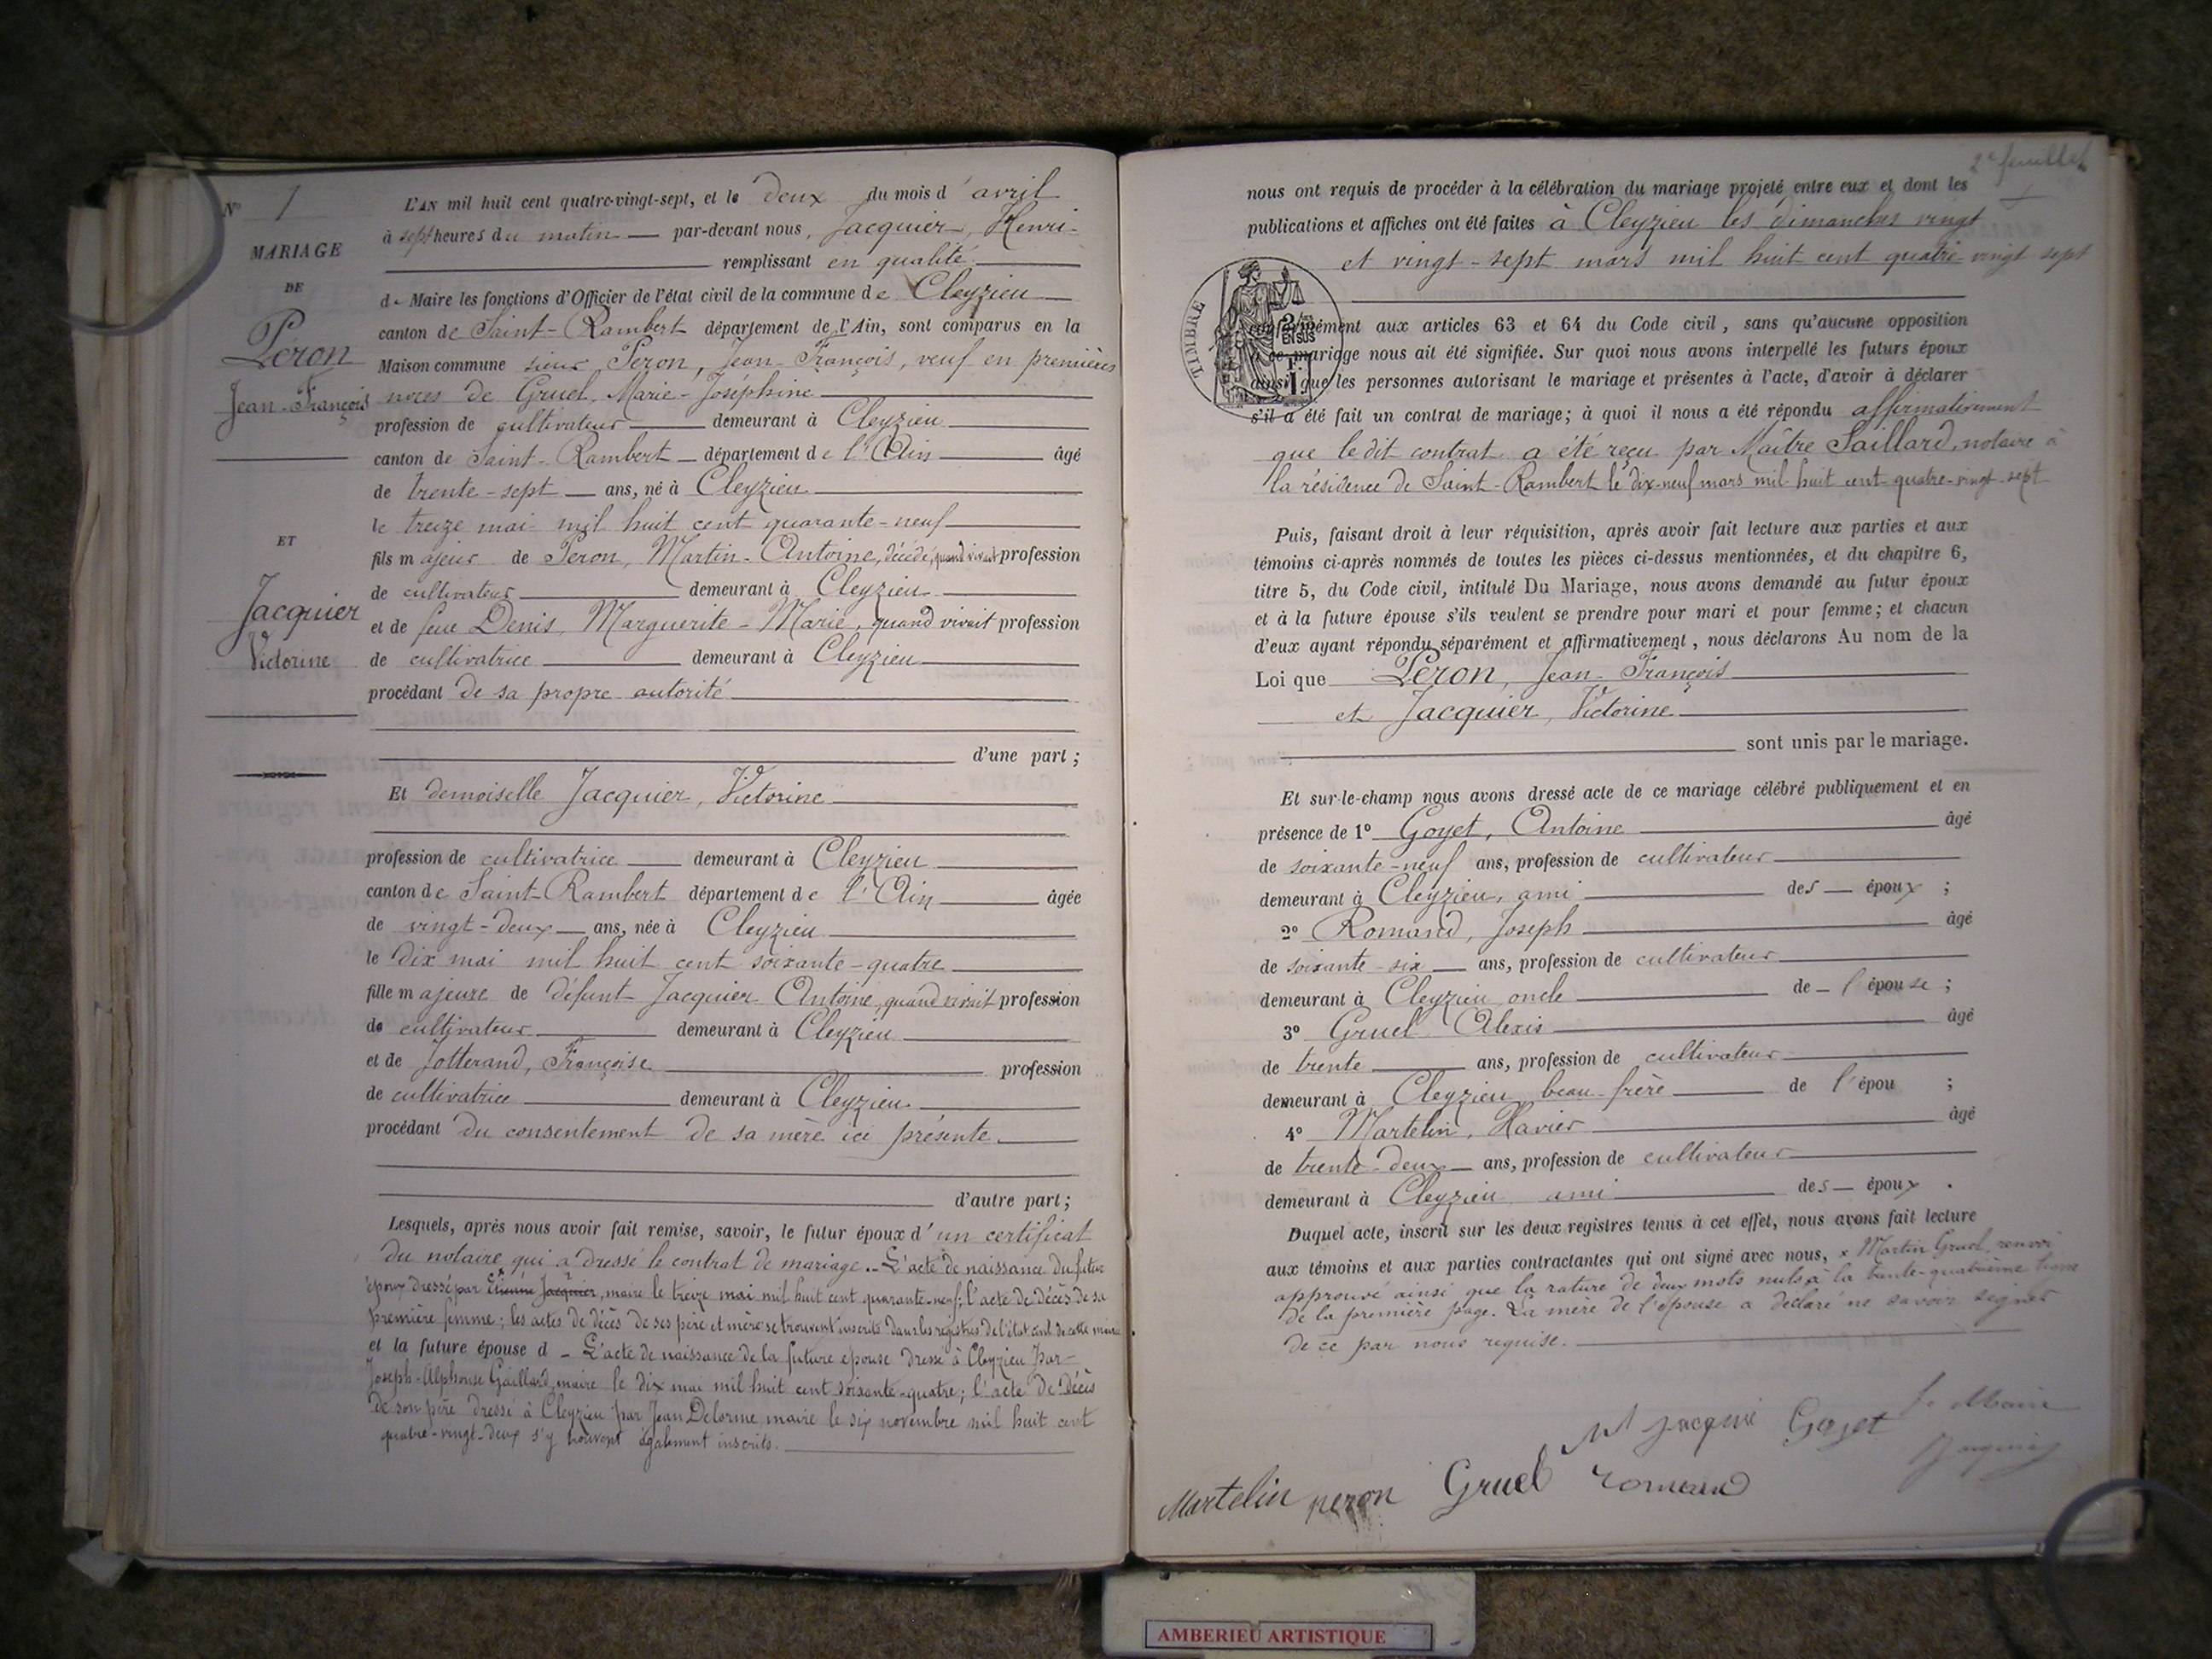 N° 1
MARIAGE
DE
Péron
Jean-François
ET
Jacquier
Victorine
L'AN mil huit cent quatre-vingt-sept, et le deux du mois d'avril
à sept heures du matin par-devant nous, Jacquier, Henri
remplissant en qualité
de Maire les fonctions d'Officier de l'état civil de la commune de Cleyzieu
canton de Saint-Rambert département de l'Ain, sont comparus en la
Maison commune sieur Peron, Jean-François, veuf en premières
noces de Gruel, Marie-Joséphine
profession de cultivateur demeurant à Cleyzieu
canton de Saint-Rambert département de l'Ain âgé
de trente-sept ans, né à Cleyzieu
le treize mai mil huit cent quarante-neuf
fils majeur de Peron, Martin-Antoine, décédé, quand vivait profession
de cultivateur demeurant à Cleyzieu
et de feue Denis, Marguerite-Marie, quand vivait profession
de cultivatrice demeurant à Cleyzieu
procédant de sa propre autorité
d'une part ;
Et demoiselle Jacquier, Victorine
profession de cultivatrice demeurant à Cleyzieu
canton de Saint-Rambert département de l'Ain âgée
de vingt-deux ans, née à Cleyzieu
le dix mai mil huit cent soixante-quatre
fille majeure de défunt Jacquier Antoine, quand vivait profession
de cultivateur demeurant à Cleyzieu
et de Jotterand, Françoise profession
de cultivatrice demeurant à Cleyzieu
procédant du consentement de sa mère ici présente
d'autre part ;
Lesquels, après nous avoir fait remise, savoir, le futur époux d'un certificat
du notaire qui a dressé le contrat de mariage. - L'acte de naissance du futur
époux dressé par Etienne Jacquier, maire le treize mai mil huit cent quarante-neuf; l'acte de décès de sa
première femme; les actes de décès de ses père et mère se trouvent inscrits dans les registres de l'état civil de cette mairie
et la future épouse d - L'acte de naissance de la future épouse dressé à Cleyzieu par
Joseph-Alphonse Gaillard, maire le dix mai mil huit cent soixante-quatre; l'acte de décès
de son père dressé à Cleyzieu par Jean Delorme, maire le six novembre mil huit cent
quatre-vingt-deux s'y trouvent également inscrits.
2e feuillet
nous ont requis de procéder à la célébration du mariage projeté entre eux et dont les
publications et affiches ont été faites à Cleyzieu les dimanches vingt
et vingt-sept mars mil huit cent quatre-vingt sept
TIMBRE
2/10 EN SUS
F. 1
conformément aux articles 63 et 64 du Code civil, sans qu'aucune opposition
à ce mariage nous ait été signifiée. Sur quoi nous avons interpellé les futurs époux
ainsi que les personnes autorisant le mariage et présentes à l'acte, d'avoir à déclarer
s'il a été fait un contrat de mariage; à quoi il nous a été répondu affirmativement
que le dit contrat a été reçu par Maître Saillard, notaire à
la résidence de Saint-Rambert le dix-neuf mars mil huit cent quatre-vingt-sept
Puis, faisant droit à leur réquisition, après avoir fait lecture aux parties et aux
témoins ci-après nommés de toutes les pièces ci-dessus mentionnées, et du chapitre 6,
titre 5, du Code civil, intitulé Du Mariage, nous avons demandé au futur époux
et à la future épouse s'ils veulent se prendre pour mari et pour femme; et chacun
d'eux ayant répondu séparément et affirmativement, nous déclarons Au nom de la
Loi que Péron, Jean-François
et Jacquier, Victorine
sont unis par le mariage.
Et sur-le-champ nous avons dressé acte de ce mariage célébré publiquement et en
présence de 1° Goyet, Antoine âgé
de soixante-neuf ans, profession de cultivateur
demeurant à Cleyzieu, ami des époux ;
2° Romand, Joseph âgé
de soixante-six ans, profession de cultivateur
demeurant à Cleyzieu, oncle de l'épouse ;
3° Gruel Alexis âgé
de trente ans, profession de cultivateur
demeurant à Cleyzieu, beau-frère de l'épou ;
4° Martelin, Xavier âgé
de trente-deux ans, profession de cultivateur
demeurant à Cleyzieu ami des époux .
Duquel acte, inscrit sur les deux registres tenus à cet effet, nous avons fait lecture
aux témoins et aux parties contractantes qui ont signé avec nous, x Martin Gruel, renvoi
approuvé ainsi que la rature de deux mots nuls à la trente-quatrième ligne
de la première page. La mère de l'épouse a déclaré ne savoir signer
de ce par nous requise.
Le Maire
Goyet
Jacquier
Martelin peron Gruel romand
AMBERIEU ARTISTIQUE